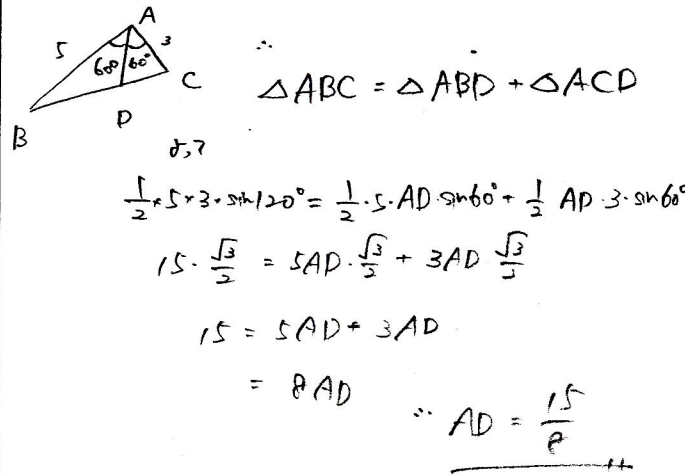 A
5 3
60° 60°
C
B
D
∴
△ABC = △ABD + △ACD
より
1/2×5×3・sin120° = 1/2・5・AD・sin60° + 1/2 AD・3・sin60°
15・√3/2 = 5AD・√3/2 + 3AD √3/2
15 = 5AD + 3AD
= 8AD
∴ AD = 15/8